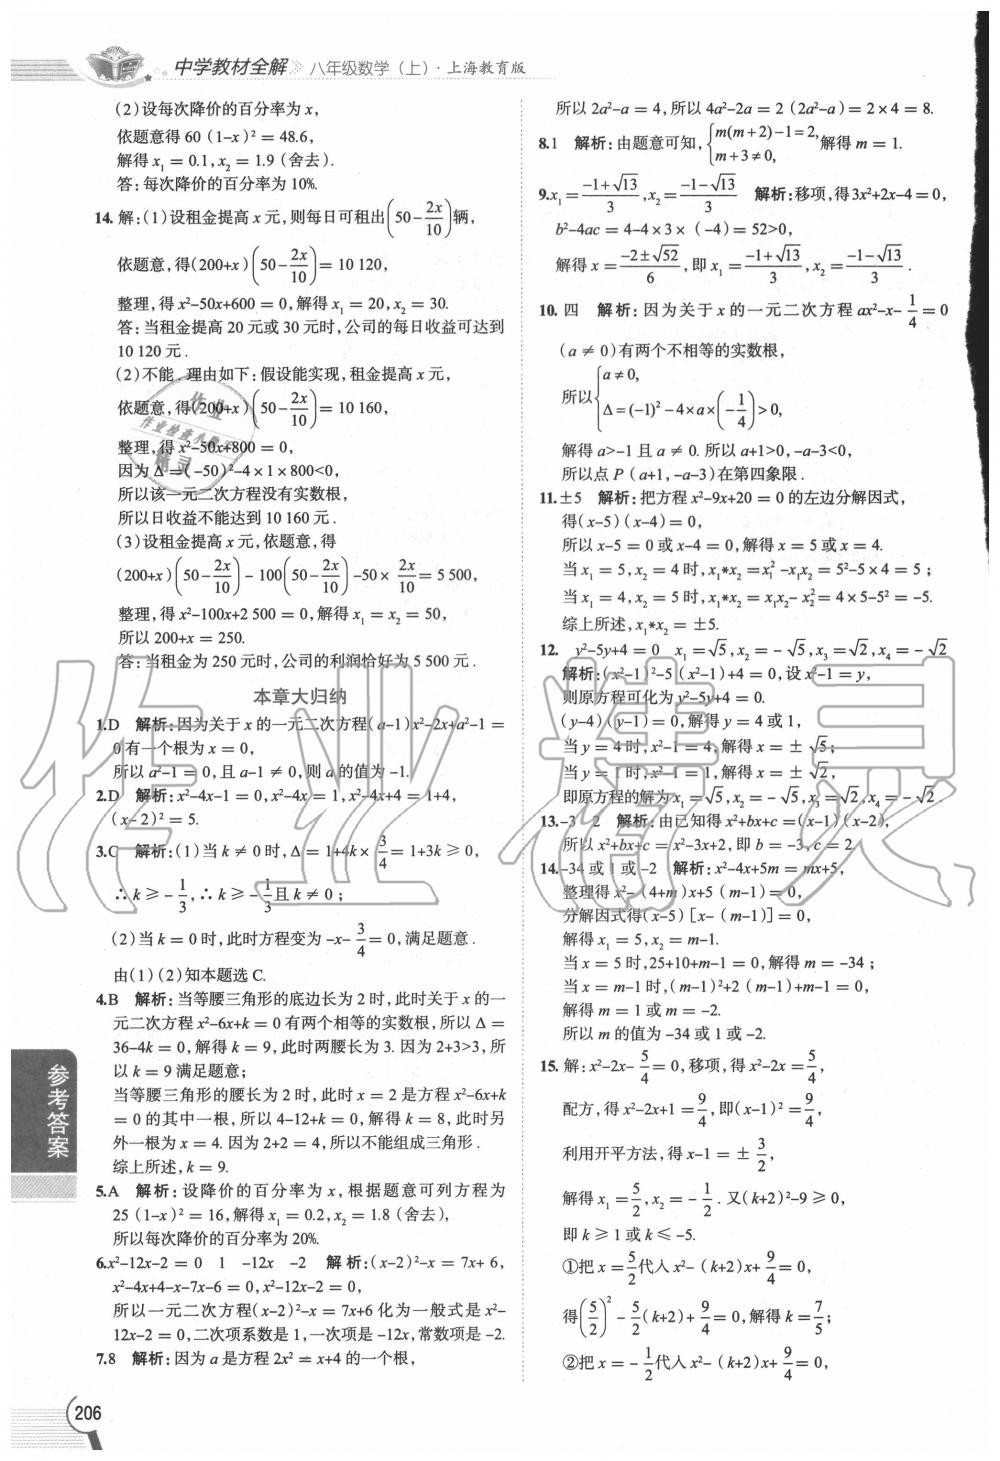 中学教材全解 八年级数学（上）·上海教育版
(2)设每次降价的百分率为x，
依题意得60(1-x)²=48.6，
解得x₁=0.1,x₂=1.9(舍去).
答：每次降价的百分率为10%.
14.解：(1)设租金提高x元,则每日可租出(50-2x/10)辆，
依题意，得(200+x)(50-2x/10)=10 120，
整理，得x²-50x+600=0,解得x₁=20,x₂=30.
答：当租金提高20元或30元时,公司的每日收益可达到
10 120元.
(2)不能.理由如下：假设能实现,租金提高x元，
依题意,得(200+x)(50-2x/10)=10 160，
整理,得x²-50x+800=0，
因为Δ=(-50)²-4×1×800<0，
所以该一元二次方程没有实数根，
所以日收益不能达到10 160元.
(3)设租金提高x元,依题意,得
(200+x)(50-2x/10)-100(50-2x/10)-50×2x/10=5 500，
整理,得x²-100x+2 500=0,解得x₁=x₂=50，
所以200+x=250.
答：当租金为250元时,公司的利润恰好为5 500元.
本章大归纳
1.D 解析：因为关于x的一元二次方程(a-1)x²-2x+a²-1=
0有一个根为x=0，
所以a²-1=0,且a-1≠0,则a的值为-1.
2.D 解析：x²-4x-1=0,x²-4x=1,x²-4x+4=1+4，
(x-2)²=5.
3.C 解析：(1)当k≠0时,Δ=1+4k×3/4=1+3k≥0，
∴k≥-1/3,∴k≥-1/3且k≠0；
(2)当k=0时,此时方程变为-x-3/4=0,满足题意.
由(1)(2)知本题选C.
4.B 解析：当等腰三角形的底边长为2时,此时关于x的一
元二次方程x²-6x+k=0有两个相等的实数根,所以Δ=
36-4k=0,解得k=9,此时两腰长为3.因为2+3>3,所
以k=9满足题意；
当等腰三角形的腰长为2时,此时x=2是方程x²-6x+k
=0的其中一根,所以4-12+k=0,解得k=8,此时另
外一根为x=4.因为2+2=4,所以不能组成三角形.
综上所述,k=9.
5.A 解析：设降价的百分率为x,根据题意可列方程为
25(1-x)²=16,解得x₁=0.2,x₂=1.8(舍去)，
所以每次降价的百分率为20%.
6.x²-12x-2=0 1 -12x -2 解析：(x-2)²-x=7x+6，
x²-4x+4-x-7x-6=0,x²-12x-2=0，
所以一元二次方程(x-2)²-x=7x+6化为一般式是x²-
12x-2=0,二次项系数是1,一次项是-12x,常数项是-2.
7.8 解析：因为a是方程2x²=x+4的一个根，
所以2a²-a=4,所以4a²-2a=2(2a²-a)=2×4=8.
8.1 解析：由题意可知,{m(m+2)-1=2, m+3≠0, 解得m=1.
9.x₁=(-1+√13)/3,x₂=(-1-√13)/3 解析：移项,得3x²+2x-4=0，
b²-4ac=4-4×3×(-4)=52>0，
解得x=(-2±√52)/6,即x₁=(-1+√13)/3,x₂=(-1-√13)/3.
10.四 解析：因为关于x的一元二次方程ax²-x-1/4=0
(a≠0)有两个不相等的实数根，
所以{a≠0, Δ=(-1)²-4×a×(-1/4)>0,
解得a>-1且a≠0.所以a+1>0,-a-3<0，
所以点P(a+1,-a-3)在第四象限.
11.±5 解析：把方程x²-9x+20=0的左边分解因式，
得(x-5)(x-4)=0，
所以x-5=0或x-4=0,解得x=5或x=4.
当x₁=5,x₂=4时,x₁*x₂=x₁²-x₁x₂=5²-5×4=5；
当x₁=4,x₂=5时,x₁*x₂=x₁x₂-x₂²=4×5-5²=-5.
综上所述,x₁*x₂=±5.
12. y²-5y+4=0 x₁=√5,x₂=-√5,x₃=√2,x₄=-√2
解析：(x²-1)²-5(x²-1)+4=0,设x²-1=y，
则原方程可化为y²-5y+4=0，
(y-4)(y-1)=0,解得y=4或1，
当y=4时,x²-1=4,解得x=±√5；
当y=1时,x²-1=1,解得x=±√2，
即原方程的解为x₁=√5,x₂=-√5,x₃=√2,x₄=-√2.
13.-3 2 解析：由已知得x²+bx+c=(x-1)(x-2)，
所以x²+bx+c=x²-3x+2,即b=-3,c=2.
14.-34或1或-2 解析：x²-4x+5m=mx+5，
整理得x²-(4+m)x+5(m-1)=0，
分解因式得(x-5)[x-(m-1)]=0，
解得x₁=5,x₂=m-1.
当x=5时,25+10+m-1=0,解得m=-34；
当x=m-1时,(m-1)²+2(m-1)+m-1=0，
解得m=1或m=-2.
所以m的值为-34或1或-2.
15.解：x²-2x-5/4=0,移项,得x²-2x=5/4，
配方,得x²-2x+1=9/4,即(x-1)²=9/4，
利用开平方法,得x-1=±3/2，
解得x₁=5/2,x₂=-1/2.又(k+2)²-9≥0，
即k≥1或k≤-5.
①把x=5/2代入x²-(k+2)x+9/4=0，
得(5/2)²-5/2(k+2)+9/4=0,解得k=7/5；
②把x=-1/2代入x²-(k+2)x+9/4=0，
参考答案
206
作业精灵
作业
作业检查小
精灵